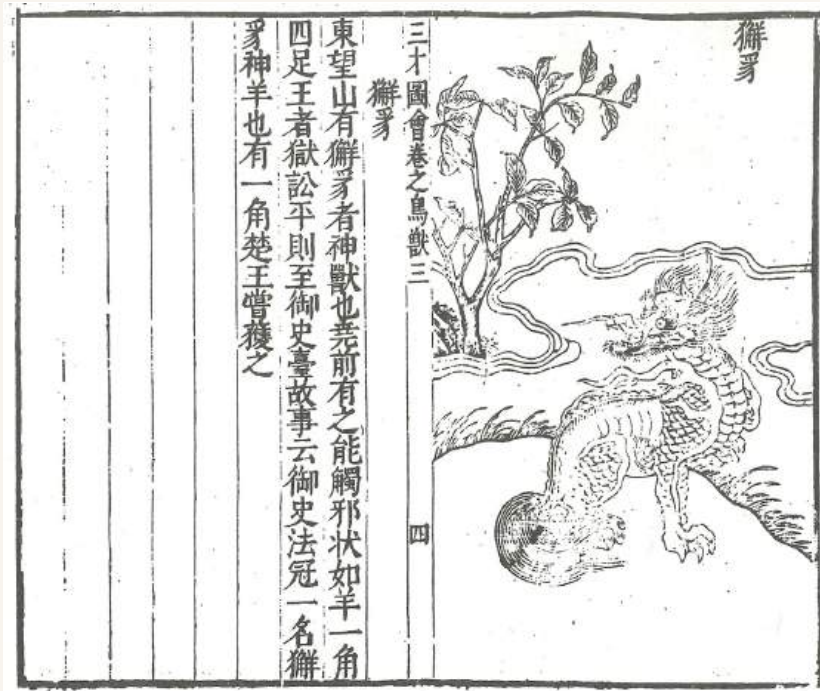 獬豸
三才圖會卷之鳥獸三
四
獬豸
東望山有獬豸者神獸也尭前有之能觸邪状如羊一角
四足王者獄訟平則至御史臺故事云御史法冠一名獬
豸神羊也有一角楚王嘗獲之